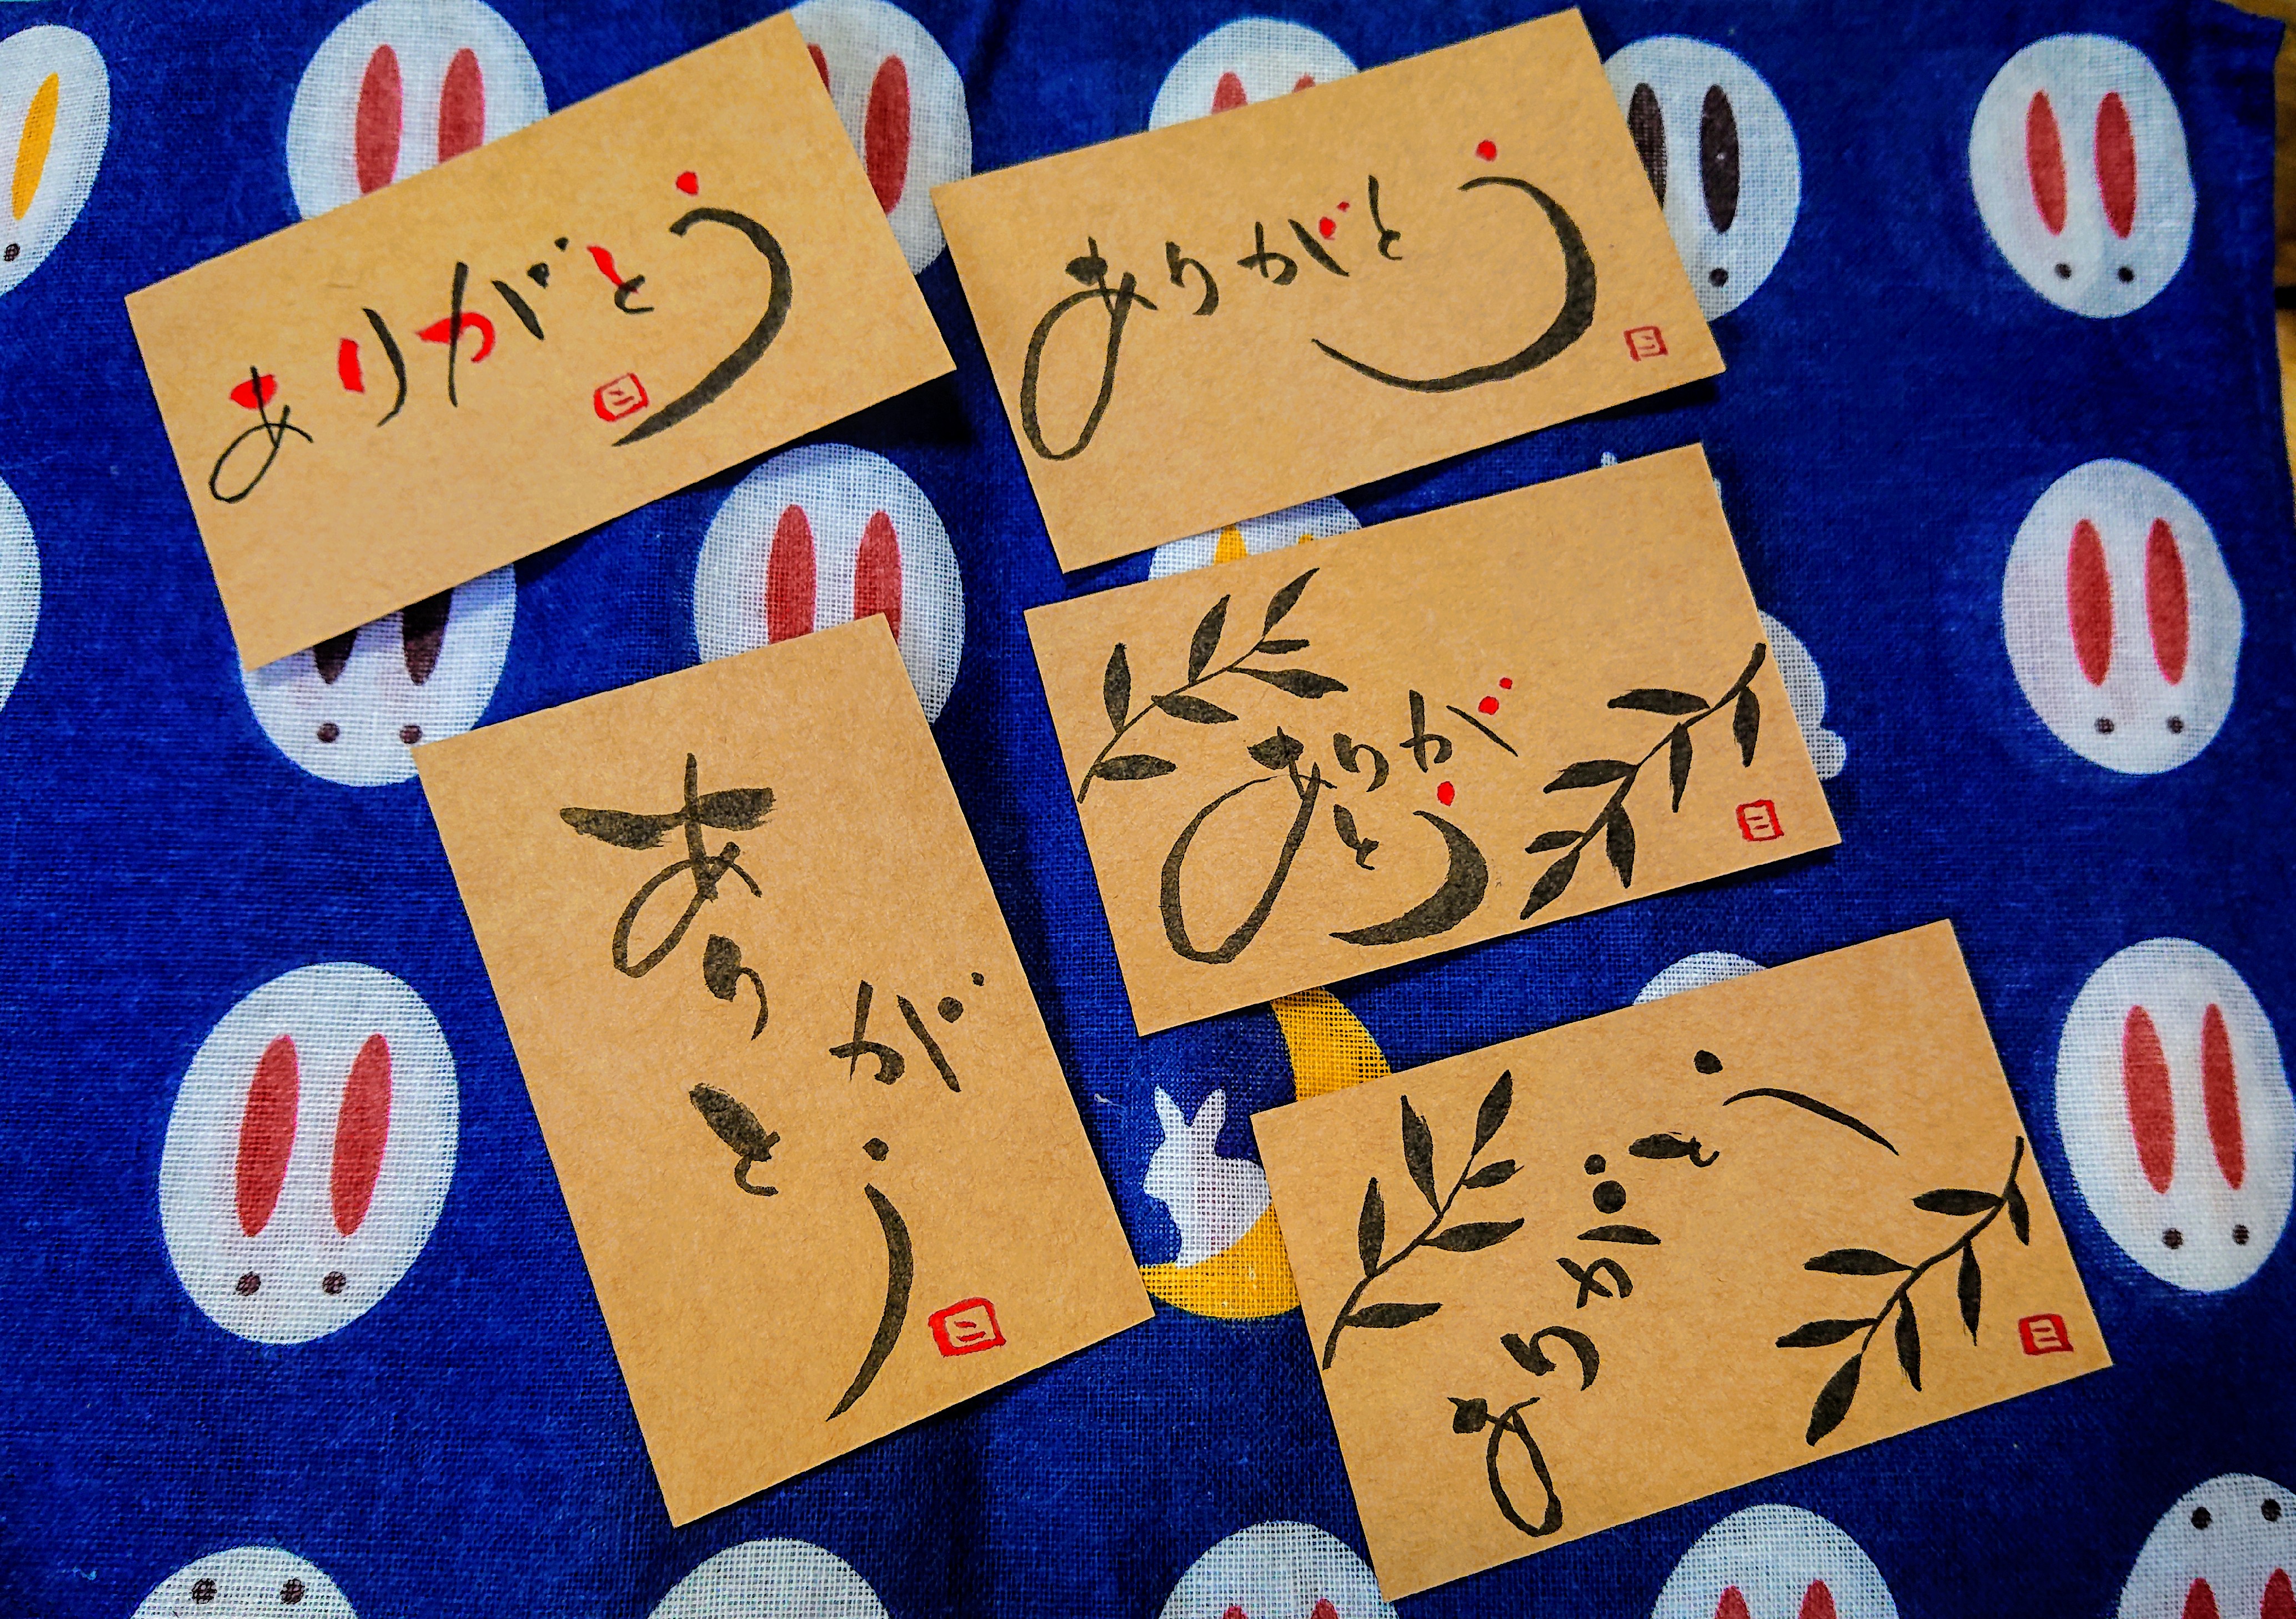 ありがとう
ありがとう
ありが
とう
ありがとう
ありがとう